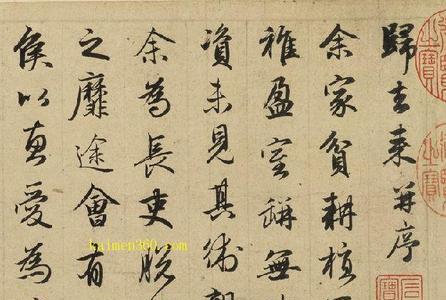 歸去来并序
余家貧耕植
稚盈室缾無
資未見其術
余為長吏脫
之靡途會有
侯以惠愛為
kaimen360.com